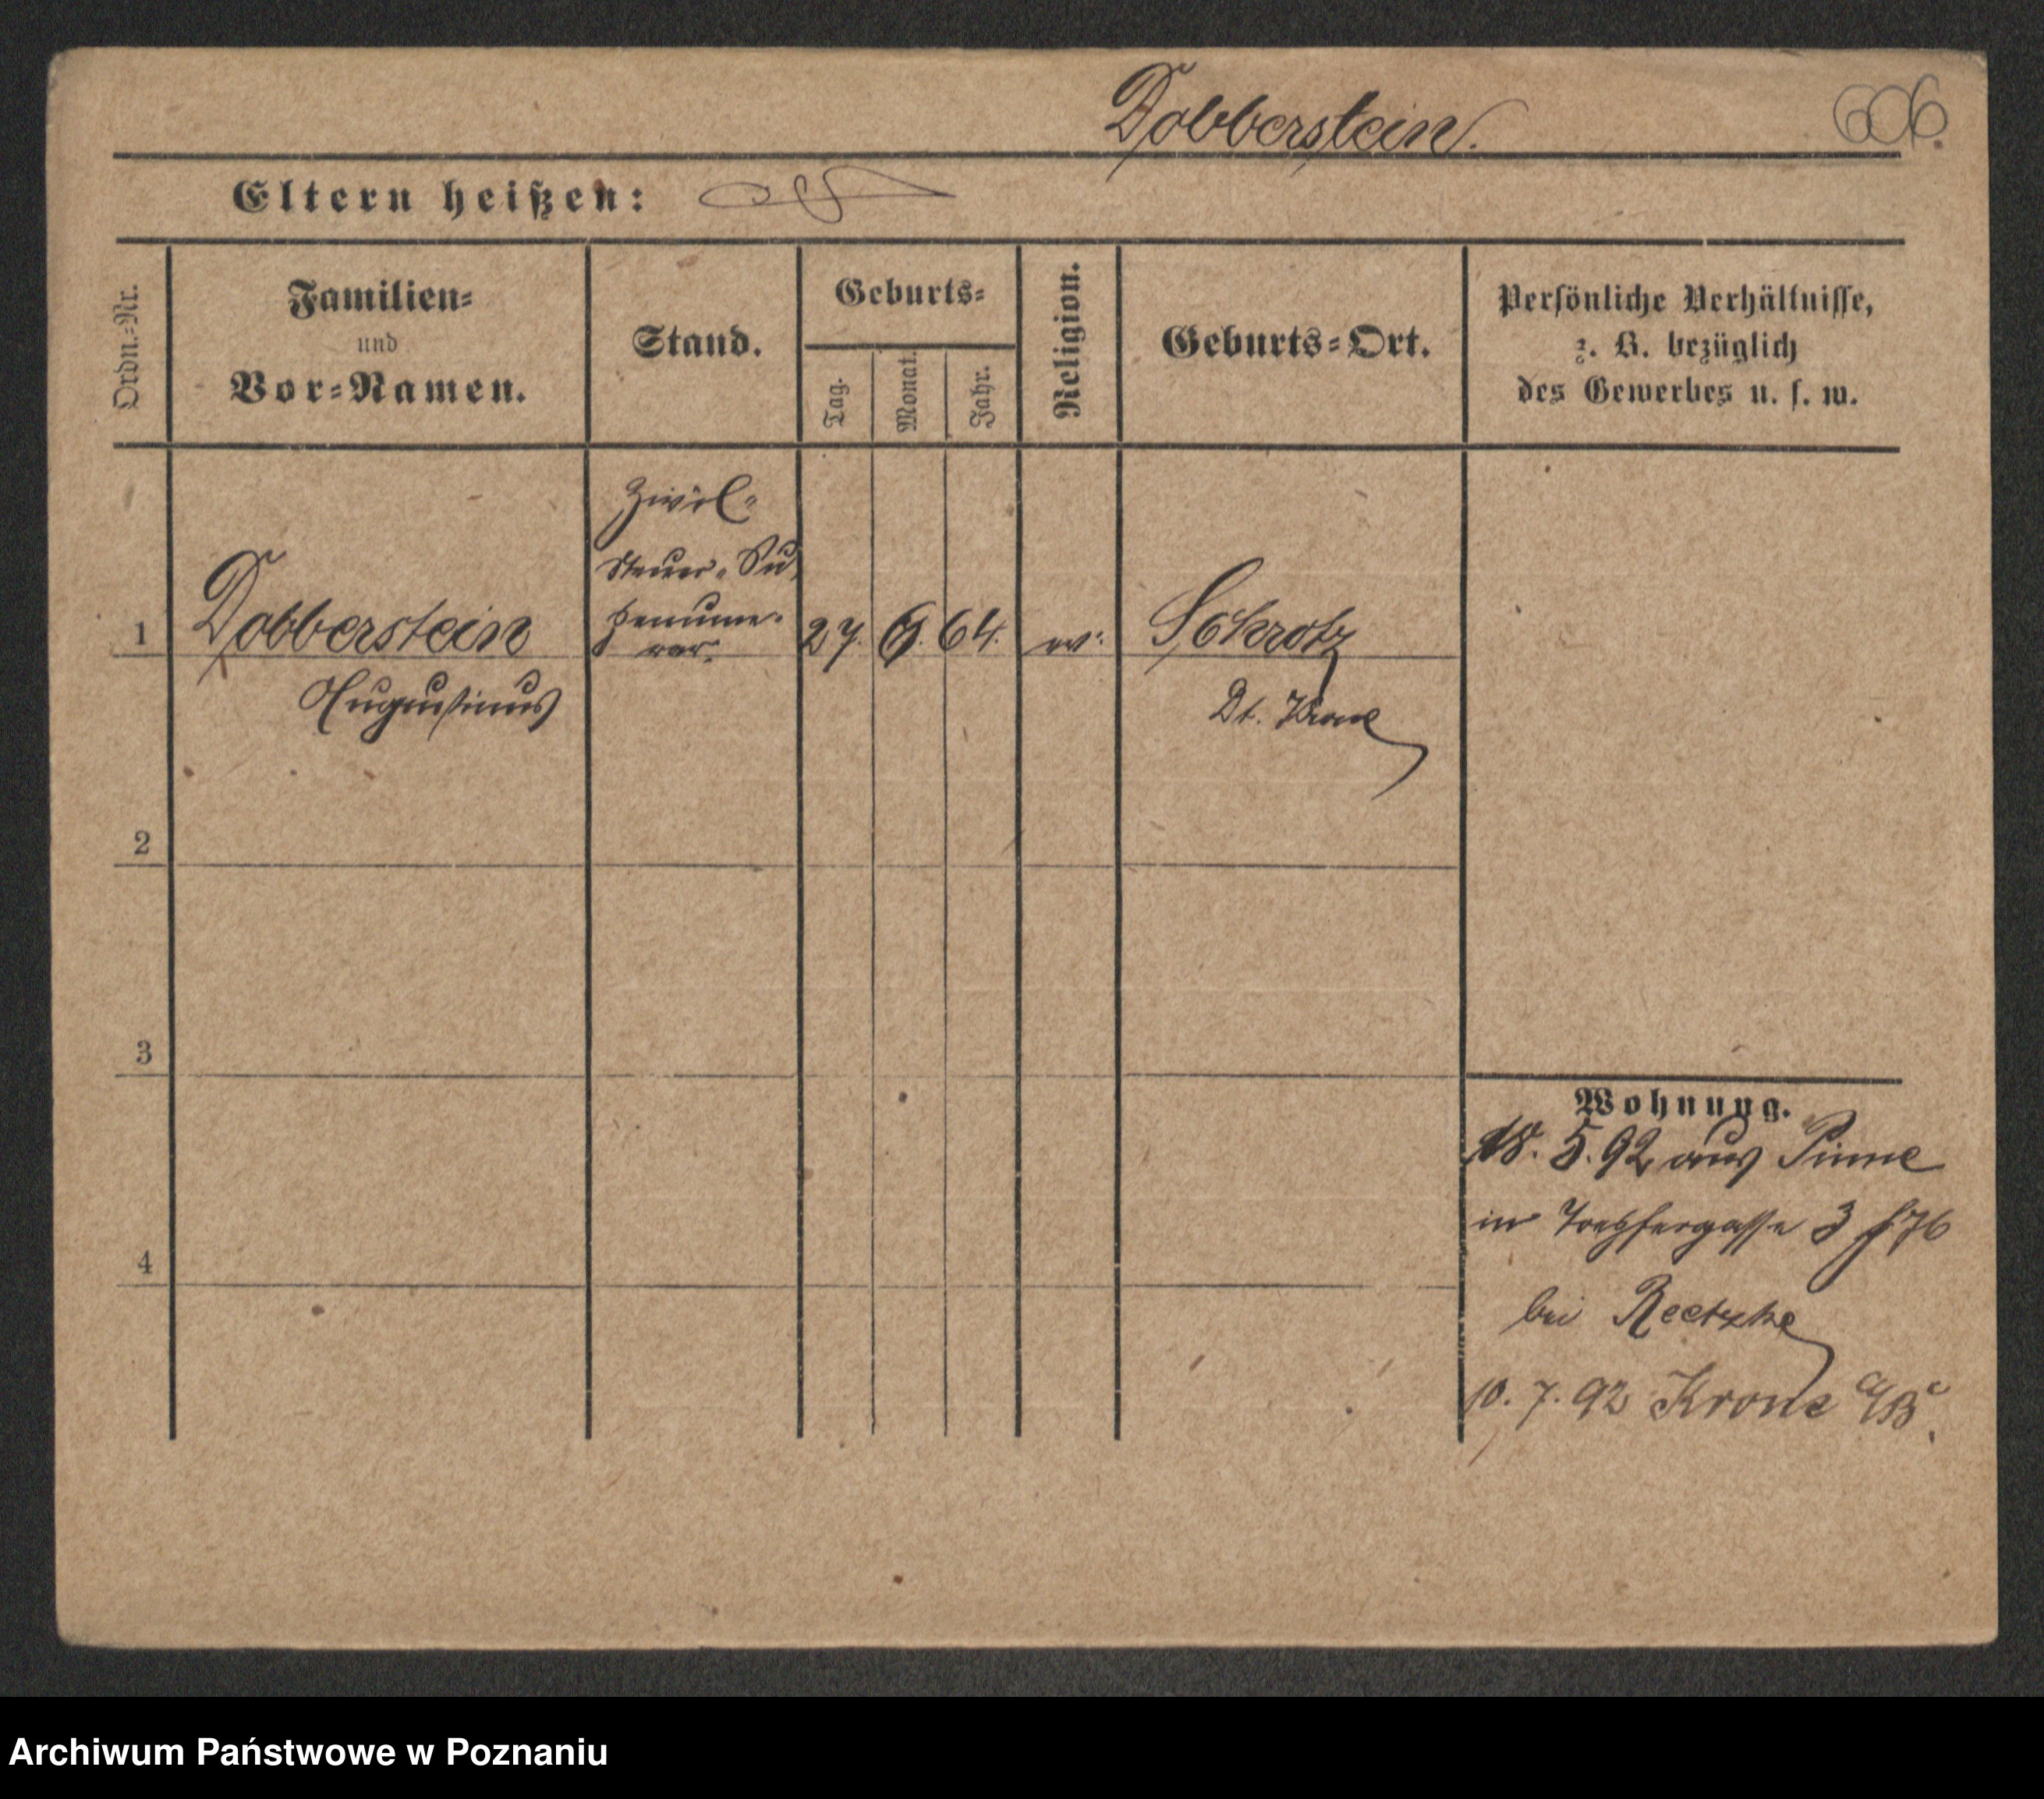 Dobberstein.
606.
Eltern heißen:
Ordn.-Nr.
Familien-
und
Vor-Namen.
Stand.
Geburts-
Tag.
Monat.
Jahr.
Religion.
Geburts-Ort.
Persönliche Verhältnisse,
z. B. bezüglich
des Gewerbes u. s. w.
1
Dobberstein
Augustinus
Zivil-
Steuer-Su
pernume-
rar.
27. 6. 64.
Schrotz
Dt. Krone
2
3
4
Wohnung.
18. 5. 92 aus Pinne
in Töpfergasse 3 f 76
bei Reetzke
10. 7. 92 Krone a/B.
Archiwum Państwowe w Poznaniu